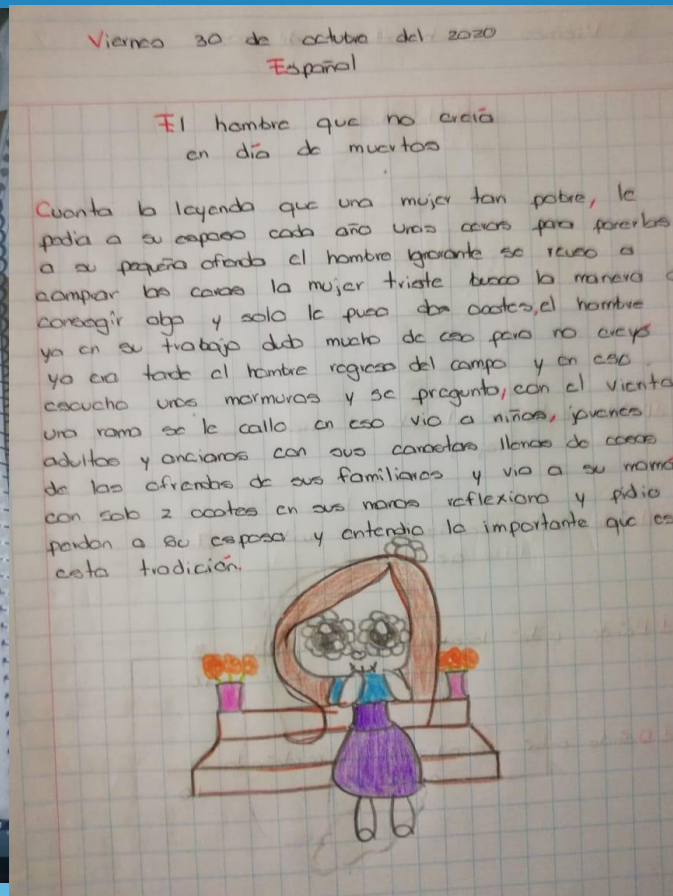 Viernes 30 de octubre del 2020
Español
El hombre que no creía
en día de muertos
Cuanta la leyenda que una mujer tan pobre, le
pedia a su esposo cada año unas ceras para ponerlas
a su pequeña ofrenda el hombre ignorante se reuso a
compiar las ceras la mujer triste busco la manera
consegir algo y solo le puso dos ocotes, el hombre
ya en su trabajo dudo mucho de eso pero no creyó
ya era tarde el hombre regreso del campo y en eso
escucho unos mormuros y se pregunto, con el viento
una rama se le callo en eso vio a niños, jovenes
adultos y ancianos con sus canastas llenas de cosas
de las ofrendas de sus familiares y vio a su mamá
con solo 2 ocotes en sus manos reflexiono y pidio
perdon a su esposa y entendio lo importante que es
esta tradición.